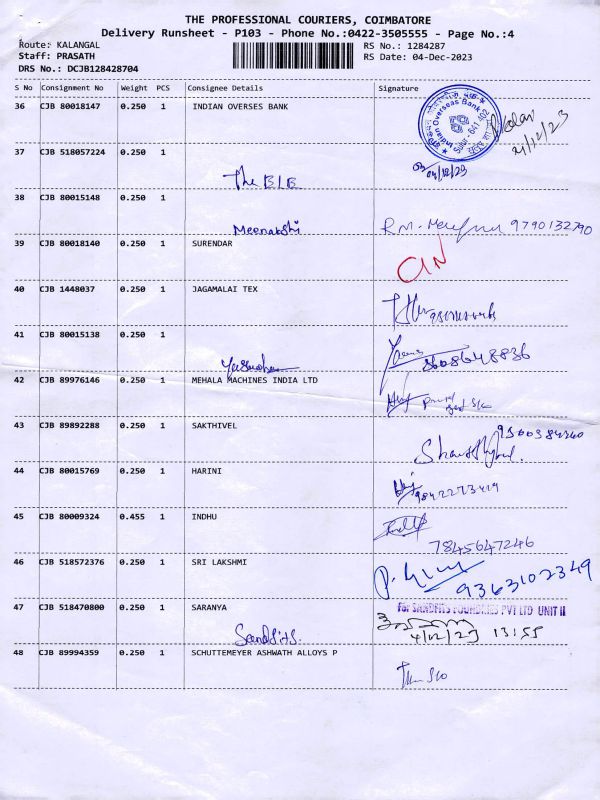 THE PROFESSIONAL COURIERS, COIMBATORE
Delivery Runsheet - P103 - Phone No.:0422-3505555 - Page No.:4
Route: KALANGAL RS No.: 1284287
Staff: PRASATH RS Date: 04-Dec-2023
DRS No.: DCJB128428704
S No Consignment No Weight PCS Consignee Details Signature
36 CJB 80018147 0.250 1 INDIAN OVERSES BANK
Indian Overseas Bank
4/12/23
37 CJB 518057224 0.250 1
04/12/23
The BIB
38 CJB 80015148 0.250 1
Meenakshi R.M. 9790132790
39 CJB 80018140 0.250 1 SURENDAR
40 CJB 1448037 0.250 1 JAGAMALAI TEX
41 CJB 80015138 0.250 1
8608648836
42 CJB 89976146 0.250 1 MEHALA MACHINES INDIA LTD
43 CJB 89892288 0.250 1 SAKTHIVEL
44 CJB 80015769 0.250 1 HARINI
9842273419
45 CJB 80009324 0.455 1 INDHU
7845647246
46 CJB 518572376 0.250 1 SRI LAKSHMI
9363102349
47 CJB 518470800 0.250 1 SARANYA for SANDFITS FOUNDRIES PVT LTD UNIT II
Sandfits. 4/12/23 13:55
48 CJB 89994359 0.250 1 SCHUTTEMEYER ASHWATH ALLOYS P